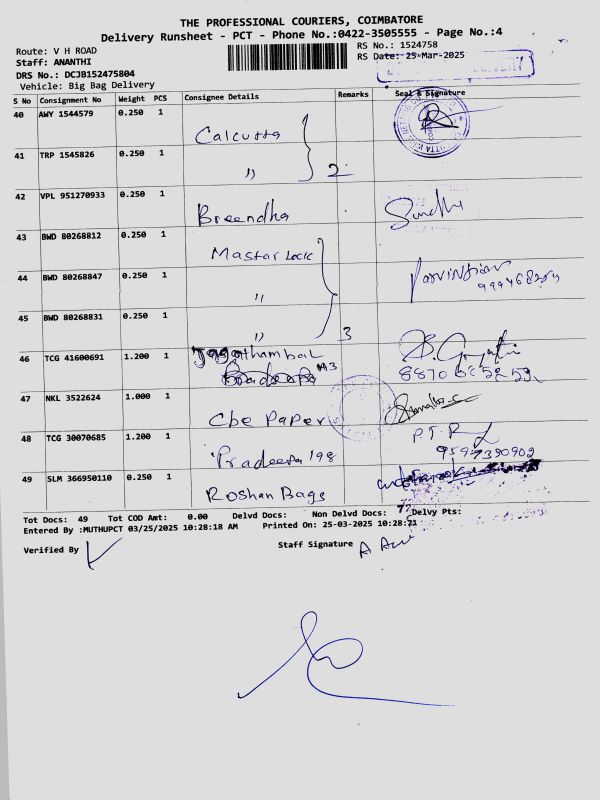 THE PROFESSIONAL COURIERS, COIMBATORE
Delivery Runsheet - PCT - Phone No.:0422-3505555 - Page No.:4
Route: V H ROAD
RS No.: 1524758
Staff: ANANTHI
RS Date: 25-Mar-2025
DRS No.: DCJB152475804
Vehicle: Big Bag Delivery
S No Consignment No Weight PCS Consignee Details Remarks Seal & Signature
40 AWY 1544579 0.250 1 Calcutta
41 TRP 1545826 0.250 1 " 2
42 VPL 951270933 0.250 1 Breendha
43 BWD 80268812 0.250 1 Mastar Lock
44 BWD 80268847 0.250 1 "
45 BWD 80268831 0.250 1 " 3
46 TCG 41600691 1.200 1 Jagathambal
47 NKL 3522624 1.000 1 Cbe Paper
48 TCG 30070685 1.200 1 Pradeepa 198 P.T.R 9597390902
49 SLM 366950110 0.250 1 Roshan Bags
Tot Docs: 49 Tot COD Amt: 0.00 Delvd Docs: Non Delvd Docs: Delvy Pts:
Entered By :MUTHUPCT 03/25/2025 10:28:18 AM Printed On: 25-03-2025 10:28:21
Verified By
Staff Signature